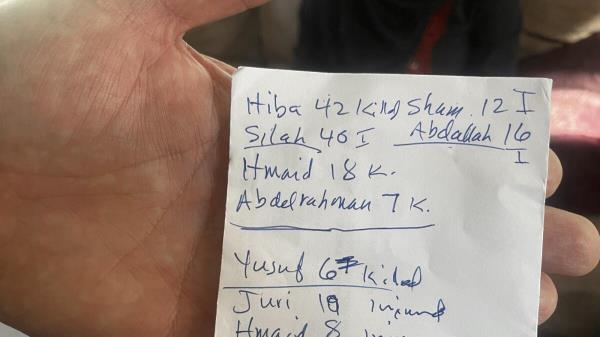 Hiba 42 Killed Sham. 12 I
Silah 40 I Abdallah 16
I
Hmaid 18 K.
Abdelrahman 7 K.
Yusuf 6 Killed
Juri 10 injured
Hmaid 8